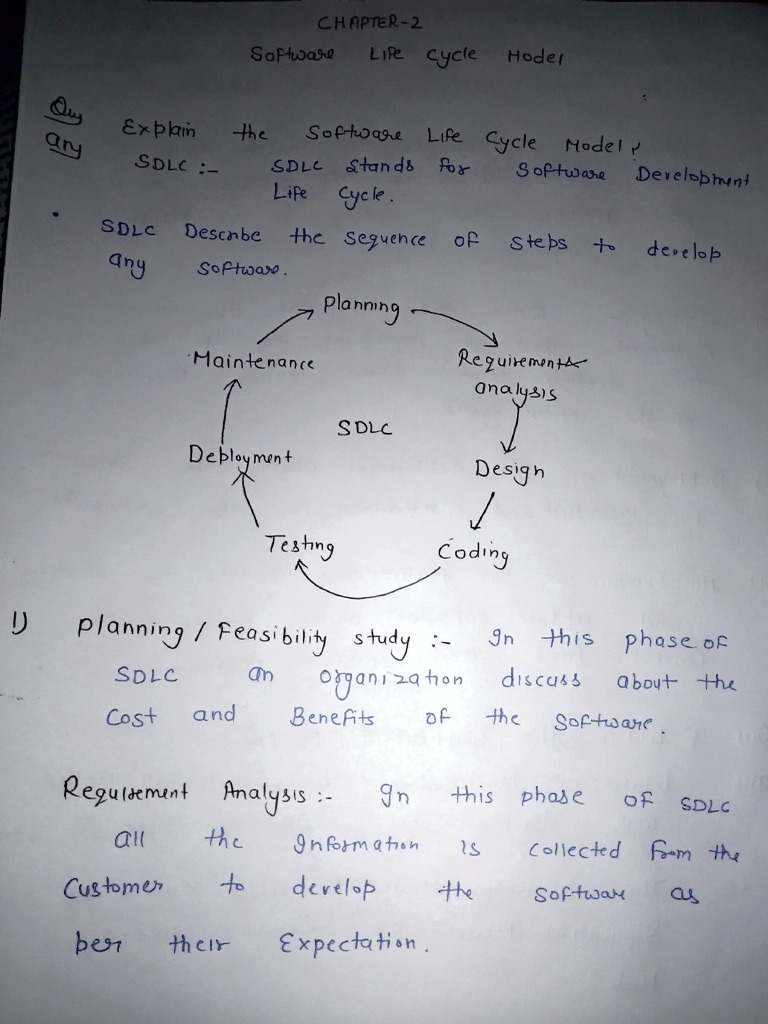 CHAPTER-2
Software Life Cycle Model
Que Explain the Software Life Cycle Model?
Ans SDLC :- SDLC Stands for Software Development
Life Cycle.
• SDLC Describe the sequence of steps to develop
any software.
Planning
Maintenance
Requirements
analysis
SDLC
Deployment
Design
Testing
Coding
1) Planning / Feasibility study :- In this phase of
SDLC an organization discuss about the
Cost and Benefits of the Software.
Requirement Analysis :- In this phase of SDLC
all the Information is collected from the
Customer to develop the software as
per their Expectation.